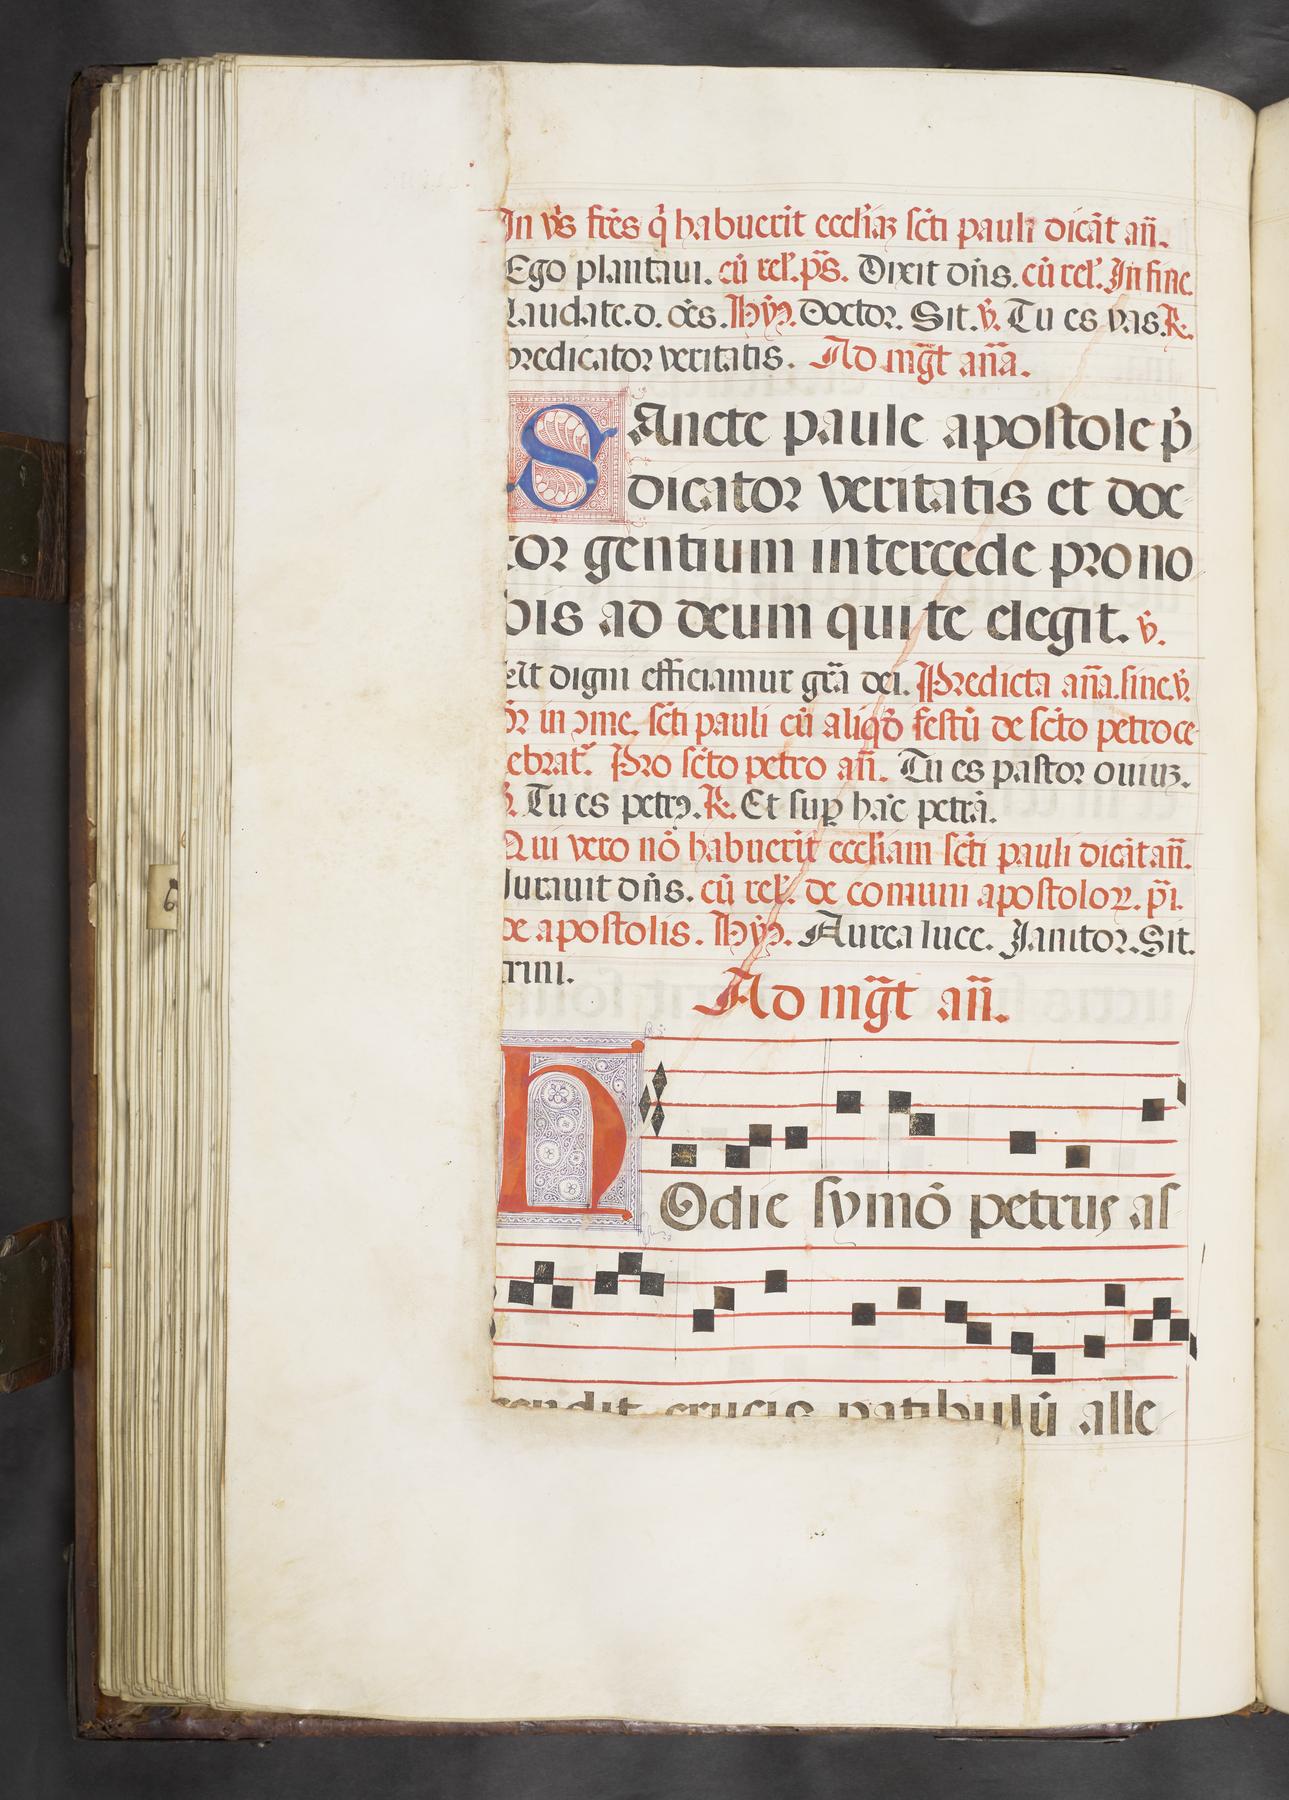 In vs̉ frēs q̉ habuerīt eccliaʒ scti pauli dicāt añ.
Ego plantaui. cū rel̉. ps̄. Dixit dñs. cū rel̉. In fine.
Laudate. d. oēs. Hỹ. Doctor. Sit. v̉. Tu es vas. R̄.
predicator veritatis. Ad mg̃t aña.
SAncte paule apostole p̄
dicator veritatis et doc
tor gentium intercede pro no
bis ad deum qui te elegit. v̉.
Ut digni efficiamur grã dei. Predicta aña. sine. v̉.
in ꝯme. scti pauli cū aliqd̉ festū de scto petro ce
lebrat̉. Pro scto petro añ. Tu es pastor ouiuʒ.
v̉. Tu es petrꝰ. R̄. Et sup̱ hāc petrā.
Qui vero nō habuerīt eccliam scti pauli dicāt añ.
Iurauit dñs. cū rel̉. de comuni apostoloꝝ. pī.
de apostolis. Hỹ. Aurea luce. Janitor. Sit.
trini.
Ad mg̃t añ.
HOdie symō petrus as
cendit crucis patibulū alle
6